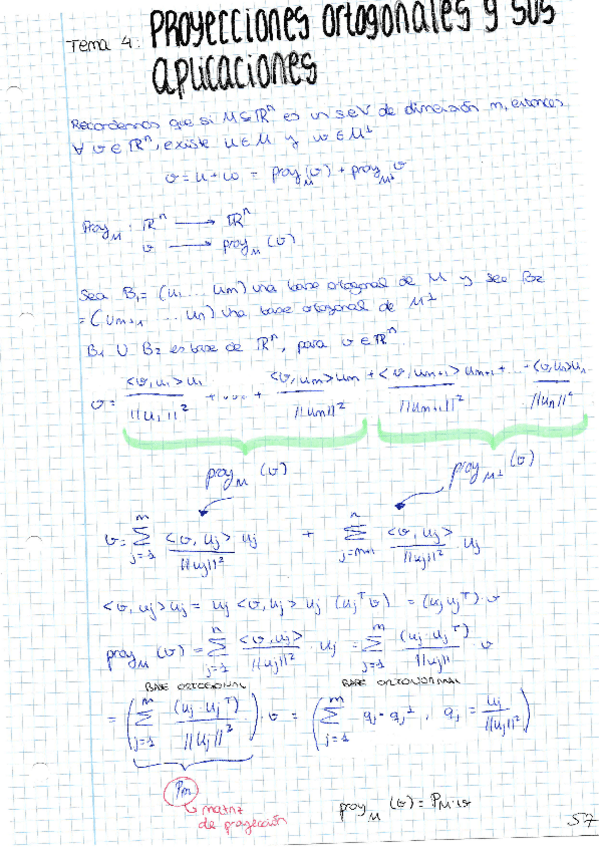 Tema 4: Proyecciones ortogonales y sus
aplicaciones
Recordemos que si M ⊆ ℝⁿ es un seV de dimensión m, entonces
∀ v ∈ ℝⁿ, existe u ∈ M y w ∈ M^⊥
v = u + w = proy_M (v) + proy_M^⊥ v
Proy_M : ℝⁿ ⟶ ℝⁿ
v ⟶ proy_M (v)
Sea B₁ = (u₁ ... um) una base ortogonal de M y sea B₂
= (um+1 ... un) una base ortogonal de M^⊥
B₁ ∪ B₂ es base de ℝⁿ, para v ∈ ℝⁿ
v = <v, u₁> u₁ / ||u₁||² + .... + <v, um> um / ||um||² + <v, um+1> um+1 / ||um+1||² + ... + <v, un> un / ||un||²
proy_M (v) proy_M^⊥ (v)
v = Σ_{j=1}^{m} <v, uj> / ||uj||² uj + Σ_{j=m+1}^{n} <v, uj> / ||uj||² · uj
<v, uj> uj = uj <v, uj> uj (uj^T v) = (uj uj^T) · v
proy_M (v) = Σ_{j=1}^{n} <v, uj> / ||uj||² · uj = Σ_{j=1}^{m} (uj · uj^T) / ||uj|| v
BASE ORTOGONAL BASE ORTONORMAL
= (Σ_{j=1}^{m} (uj · uj^T) / ||uj||²) · v = (Σ_{j=1}^{m} qj · qj^⊥, qj = uj / ||uj||²)
Pm
matriz
de proyección
proy_M (v) = P_M · v
57